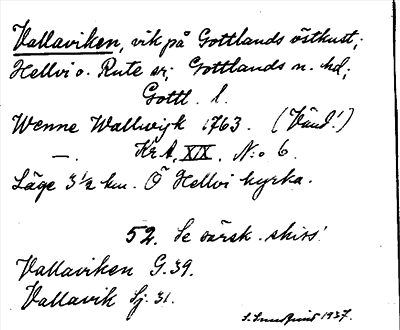 Vallaviken, vik på Gottlands östkust;
Hellvi o. Rute sr; Gottlands n. hd;
Gottl. l.
Wenne Wallwijk 1763. (Vänd!)
—. Kr A, XIX, N:o 6.
Läge 3½ km. Ö Hellvi kyrka.
52. Se särsk. skiss!
Vallaviken G. 39.
Vallavik Sj. 31.
1937.